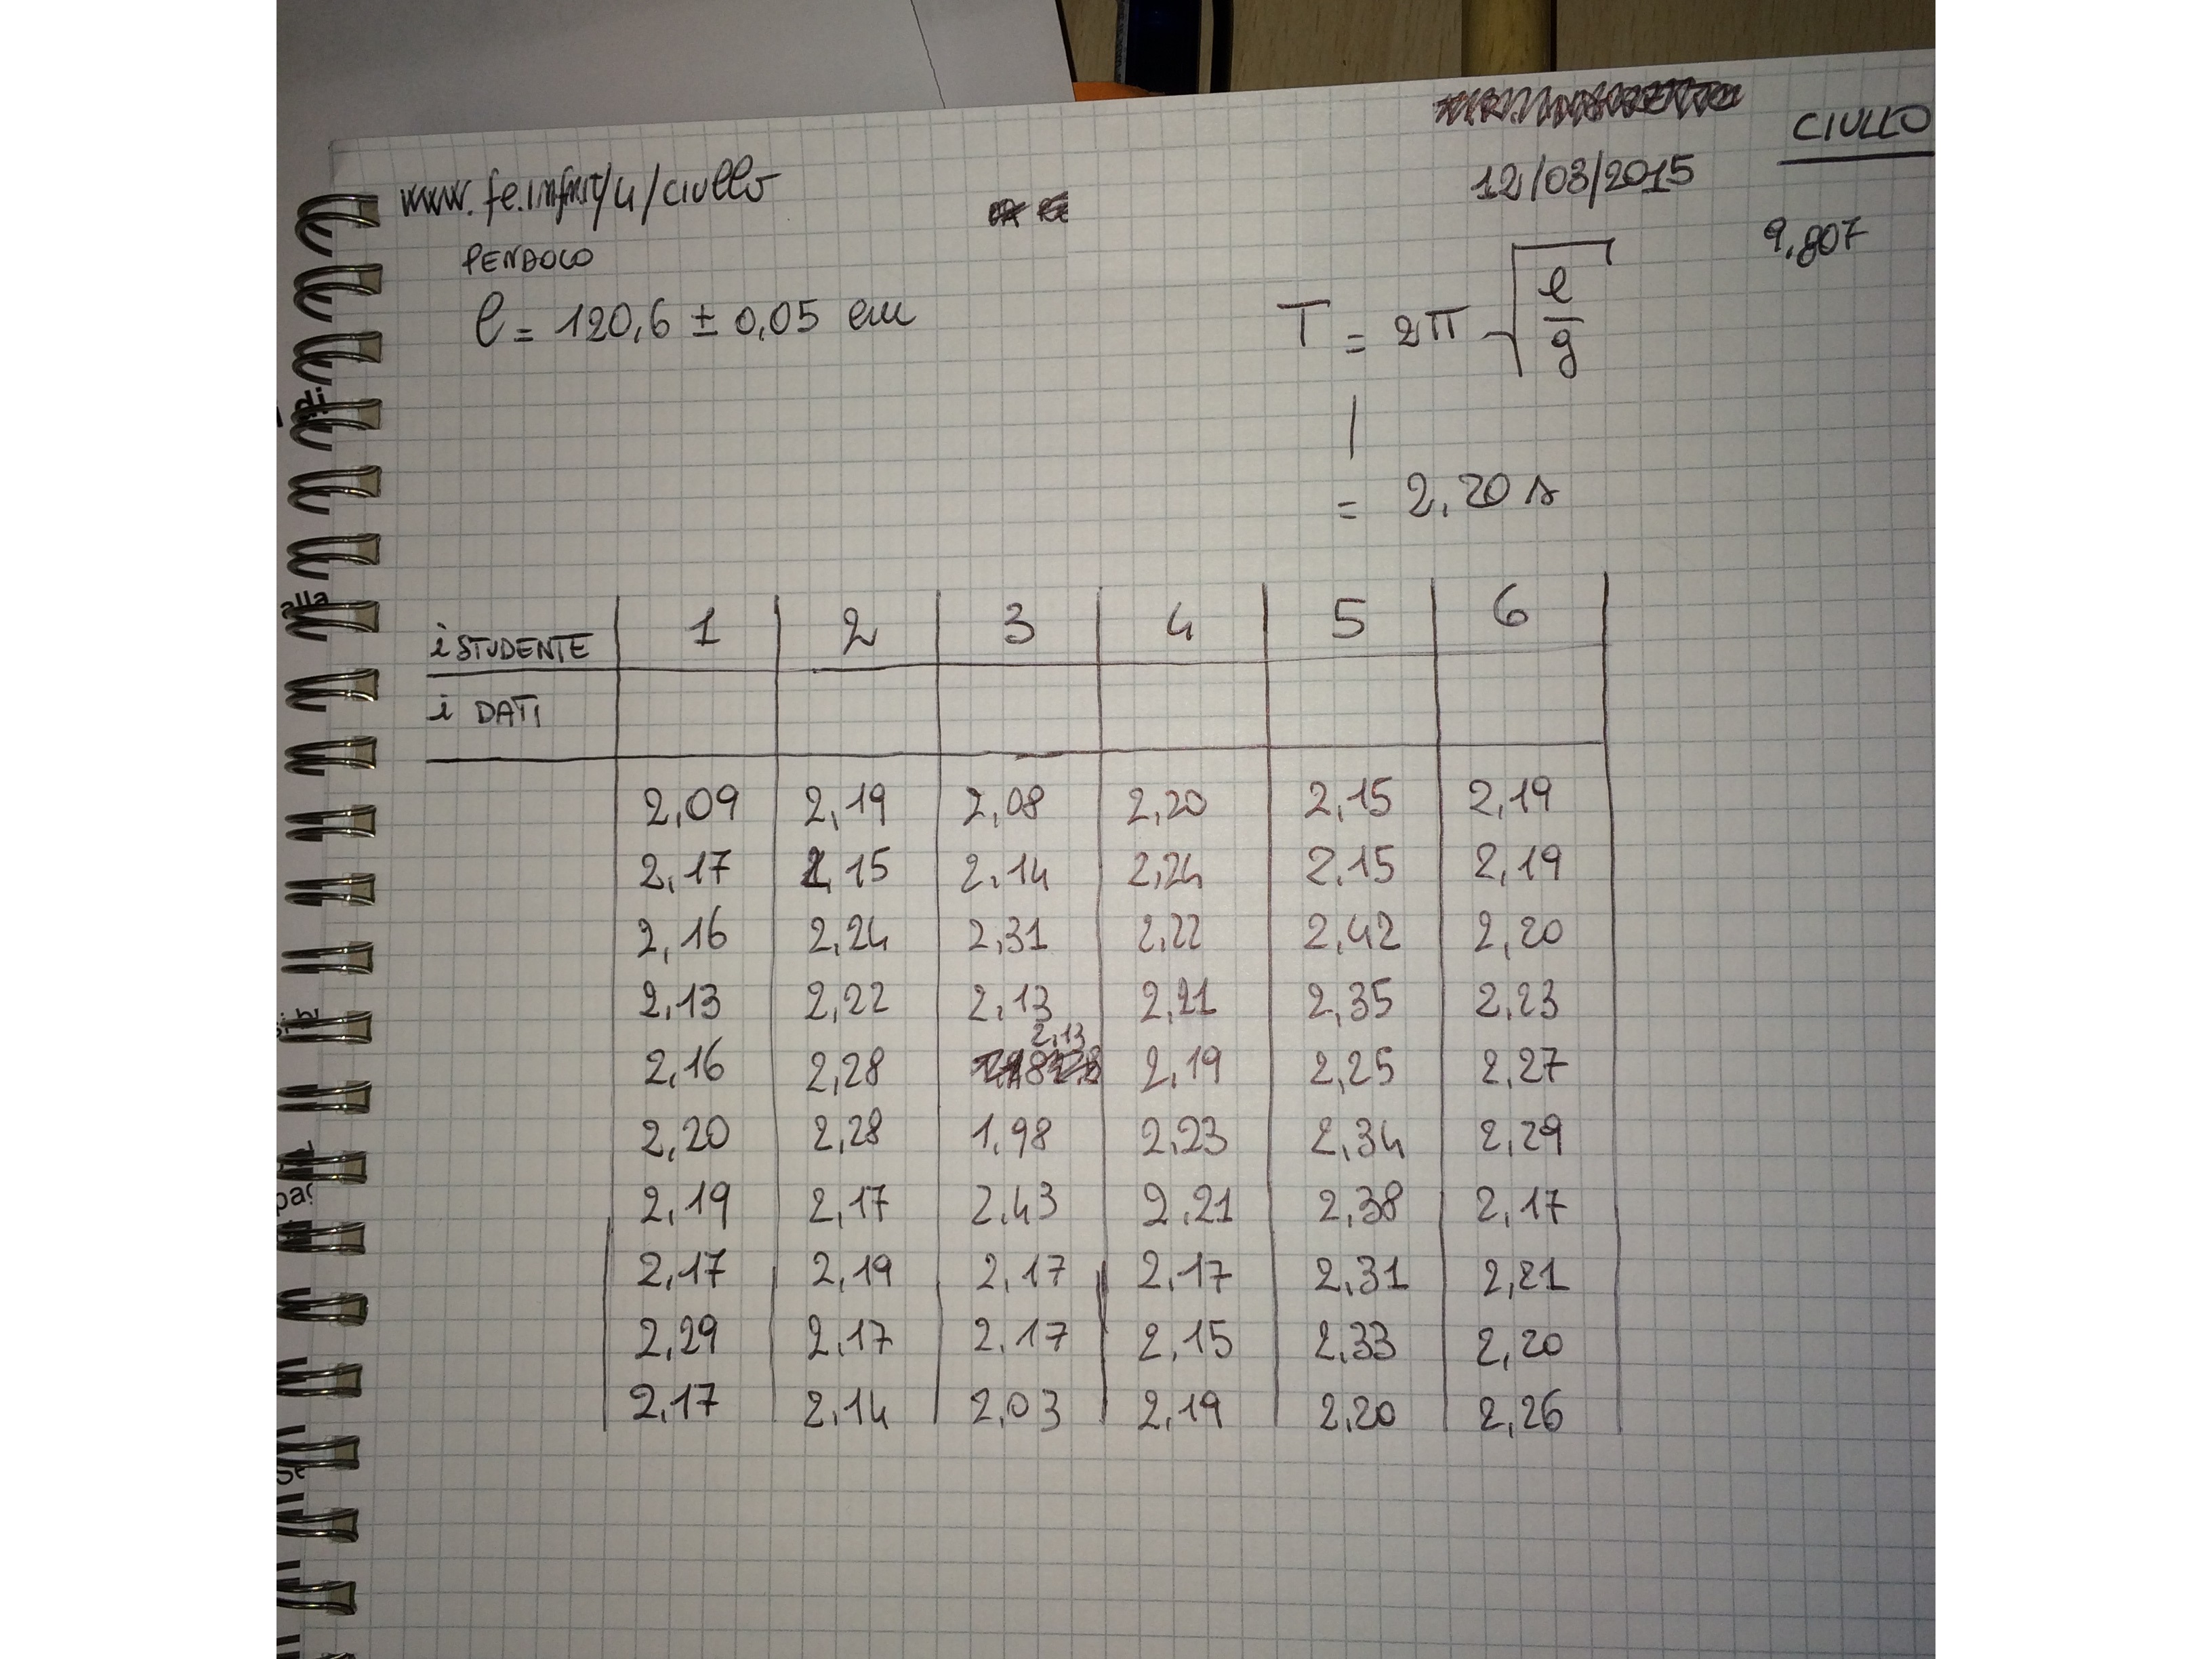 CIULLO
12/03/2015
www.fe.infn.it/u/ciullo
9,807
PENDOLO
l = 120,6 ± 0,05 cm
T = 2π √ l/g
= 2,20 s
i STUDENTE 1 2 3 4 5 6
i DATI
2,09 2,19 2,08 2,20 2,15 2,19
2,17 2,15 2,14 2,24 2,15 2,19
2,16 2,24 2,31 2,22 2,42 2,20
2,13 2,22 2,13 2,21 2,35 2,23
2,16 2,28 2,13 2,19 2,25 2,27
2,20 2,28 1,98 2,23 2,34 2,29
2,19 2,17 2,43 2,21 2,38 2,17
2,17 2,19 2,17 2,17 2,31 2,21
2,29 2,17 2,17 2,15 2,33 2,20
2,17 2,14 2,03 2,19 2,20 2,26
di
alla